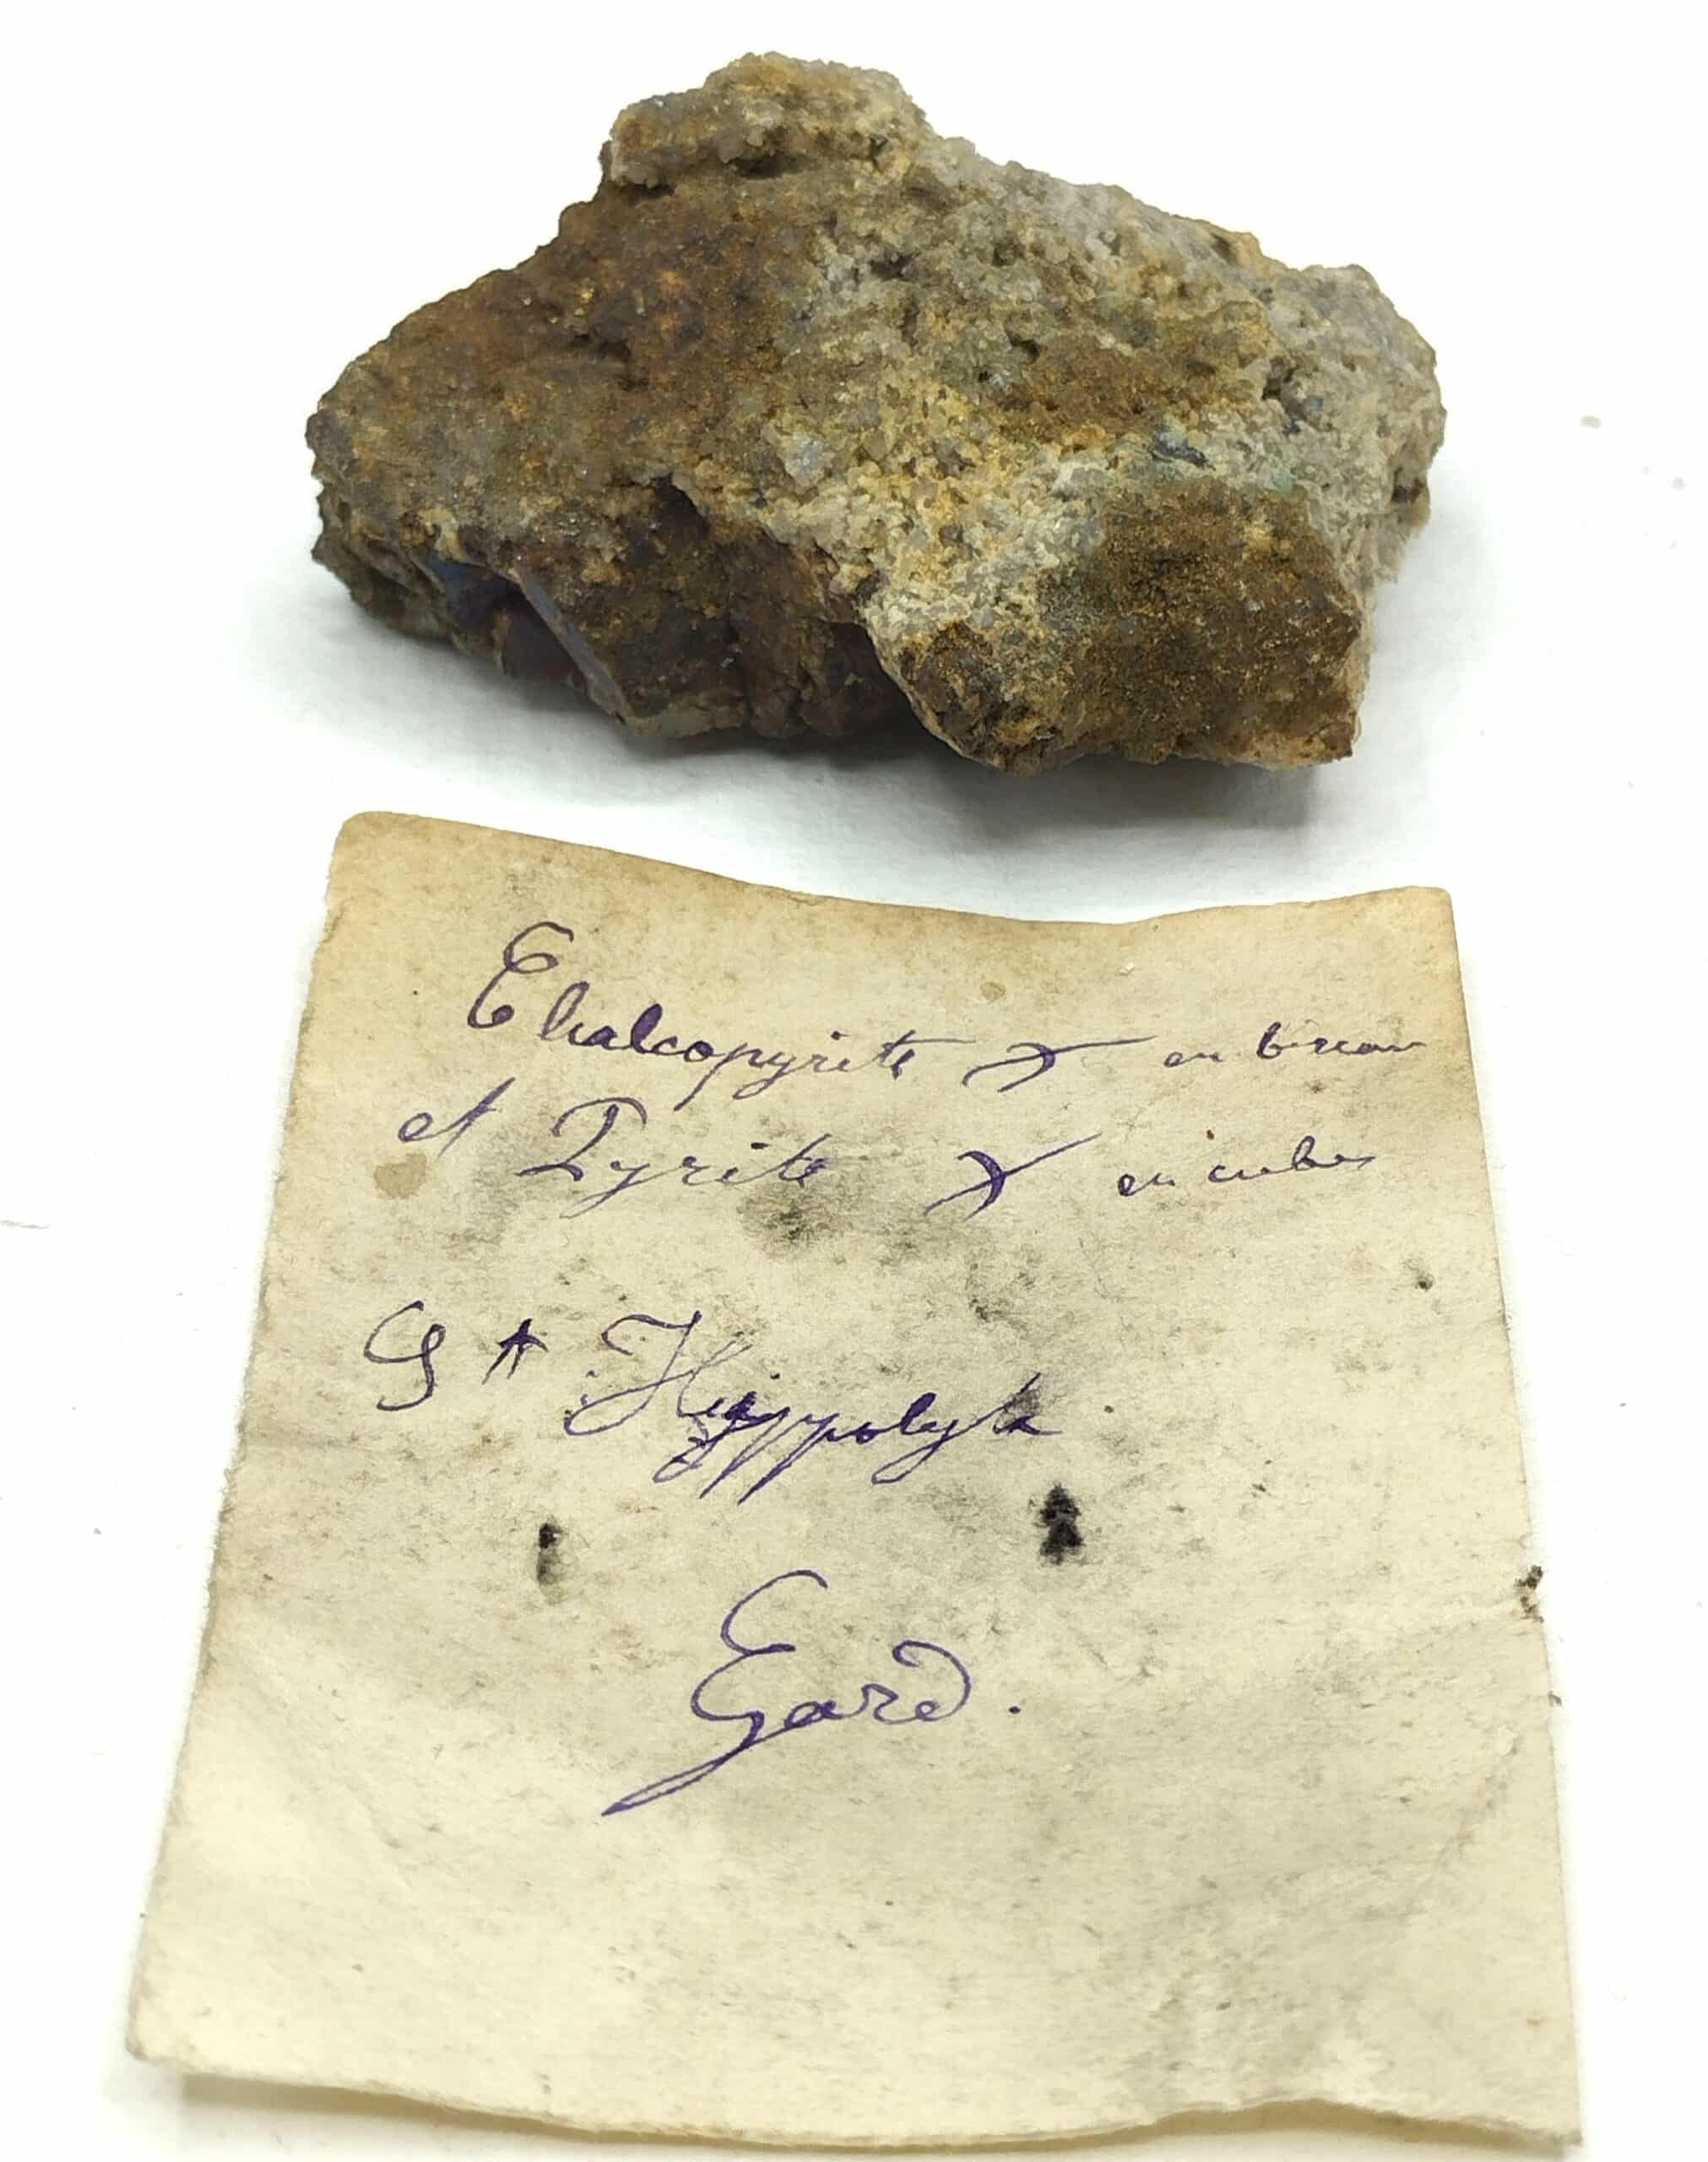 Chalcopyrite X en biseau
et Pyrite X en cubes
St Hippolyte
Gard.